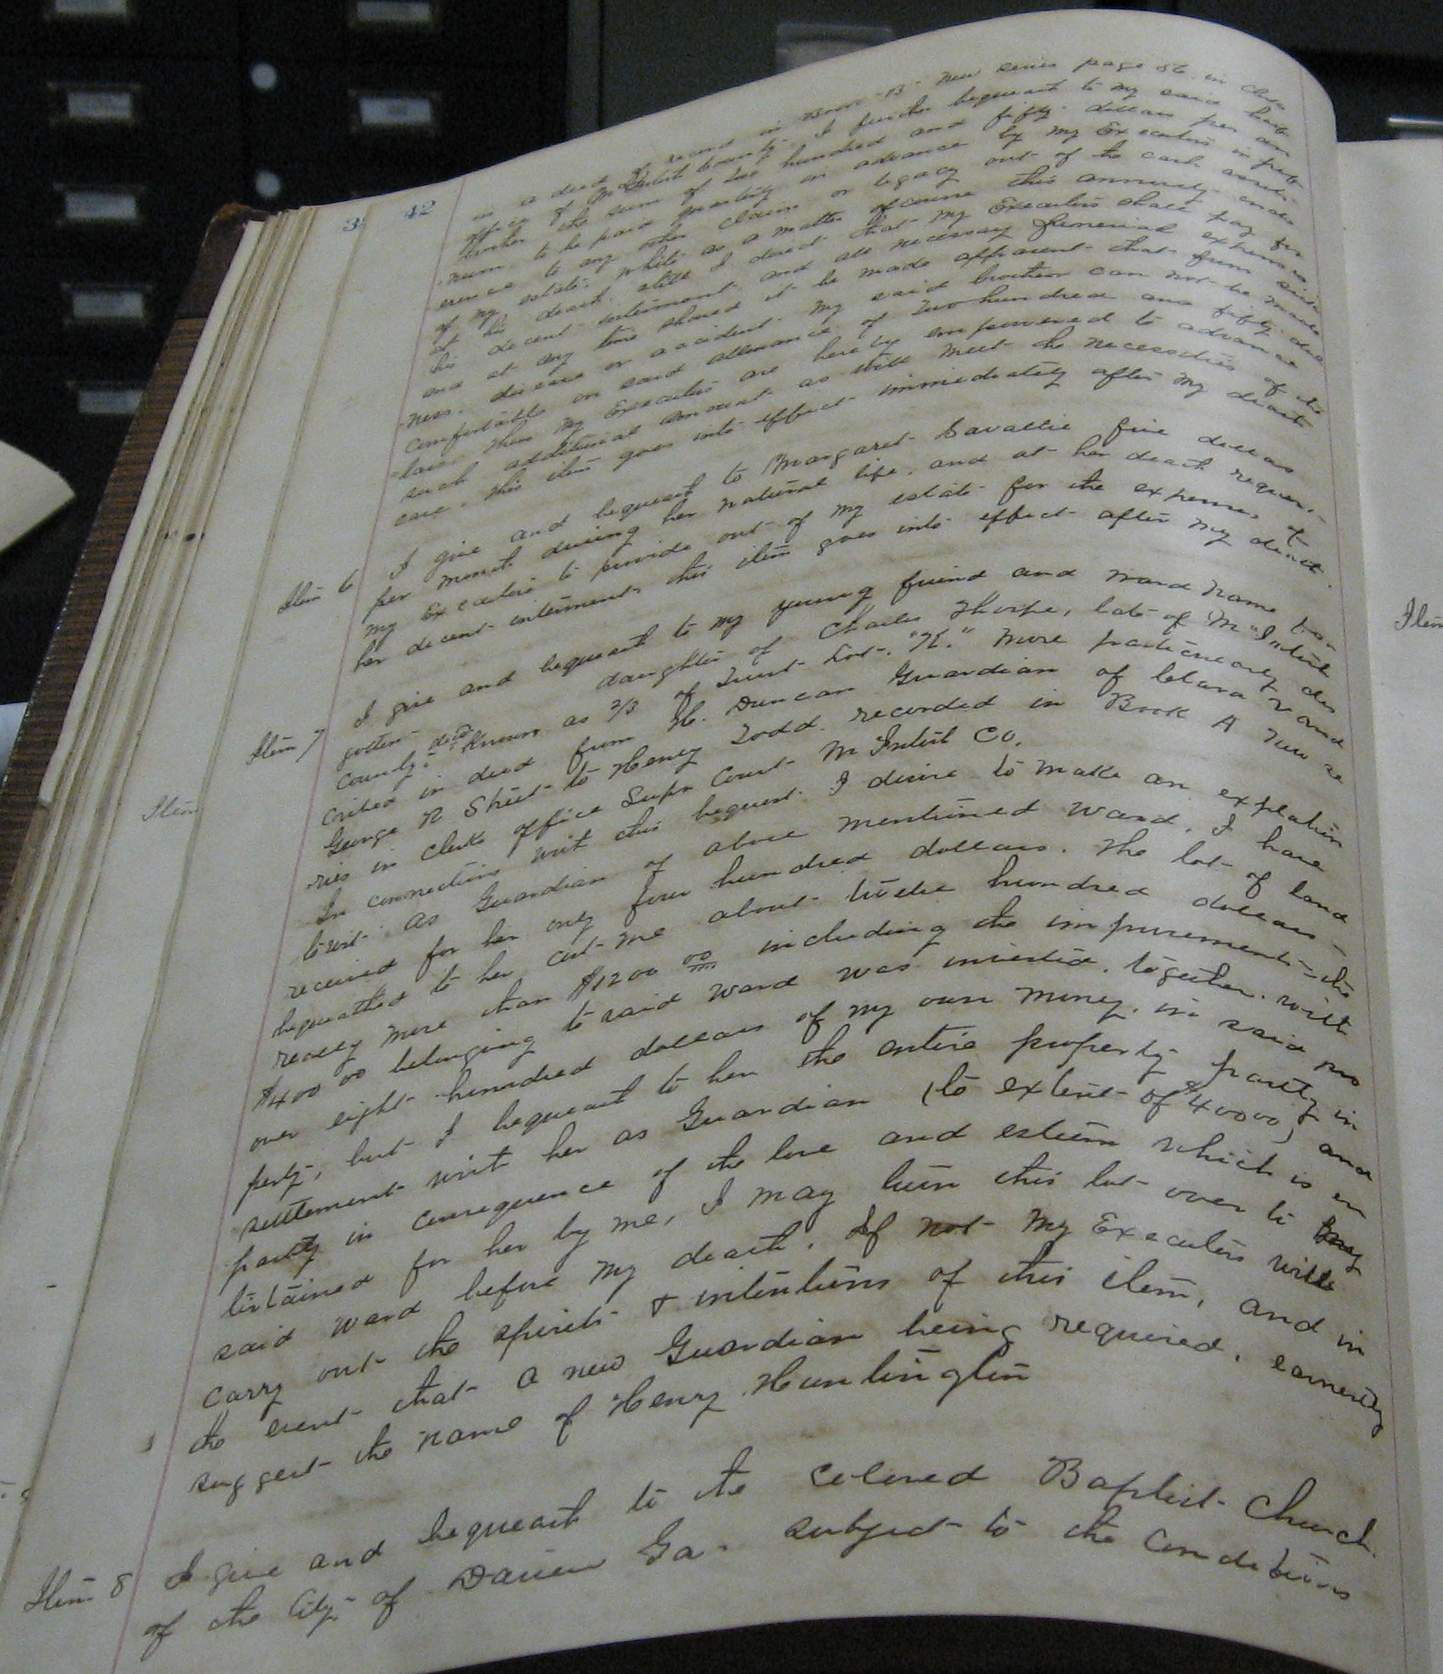 42
3
in a deed of record in Book "B" New series page 56 in Clerks
office of McIntosh County. I further bequeath to my said brother
the sum of two hundred and fifty dollars per an-
num to be paid quarterly in advance by my Executors in pref-
erence to any other claim or legacy out of the cash assets
of my estate. While as a matter of course this annuity ends
at his death still I direct that my Executors shall pay for
his decent interment and all necessary funeral expenses
and at any time should it be made apparent that from sick
ness, disease or accident my said brother can not be made
comfortable on said allowance of two hundred and fifty dol
lars. Then my Executors are hereby empowered to advance
such additional amount as will meet the necessities of the
case. This item goes into effect immediately after my death
Item 6
I give and bequeath to Margaret Savallie five dollars
per month during her natural life, and at her death request
my Executors to provide out of my estate for the expense of
her decent interment this item goes into effect after my death.
Item 7
I give and bequeath to my young friend and ward name
daughter of Charles Thorpe, late of McIntosh
County decd known as 2/3 of Trust Lot "K." more particularly des
cribed in deed from H. Duncan Guardian of Clara V and
George R Street to Henry Todd recorded in Book A New se
ries in clerks office Supr Court McIntosh Co.
In connection with this bequest I desire to make an explation
towit: as Guardian of above mentioned ward, I have
received for her only four hundred dollars. The lot of land
bequeathed to her cost me about twelve hundred dollars -
really more than $1200 00/100 including the improvements - the
$400 00 belonging to said ward was invested, together with
over eight hundred dollars of my own money, in said pro
perty, but I bequeath to her the entire property partly in
settlement with her as Guardian (to extent of $400 00) and
partly in consequence of the love and esteem which is en
tertained for her by me, I may turn this lot over to my
said ward before my death. If not my Executors will
carry out the spirit & intentions of this item, and in
the event that a new Guardian being required, earnestly
suggest the name of Henry Huntington
Item 8
I give and bequeath to the colored Baptist Church
of the City of Darien Ga. subject to the Conditions
Item
Item